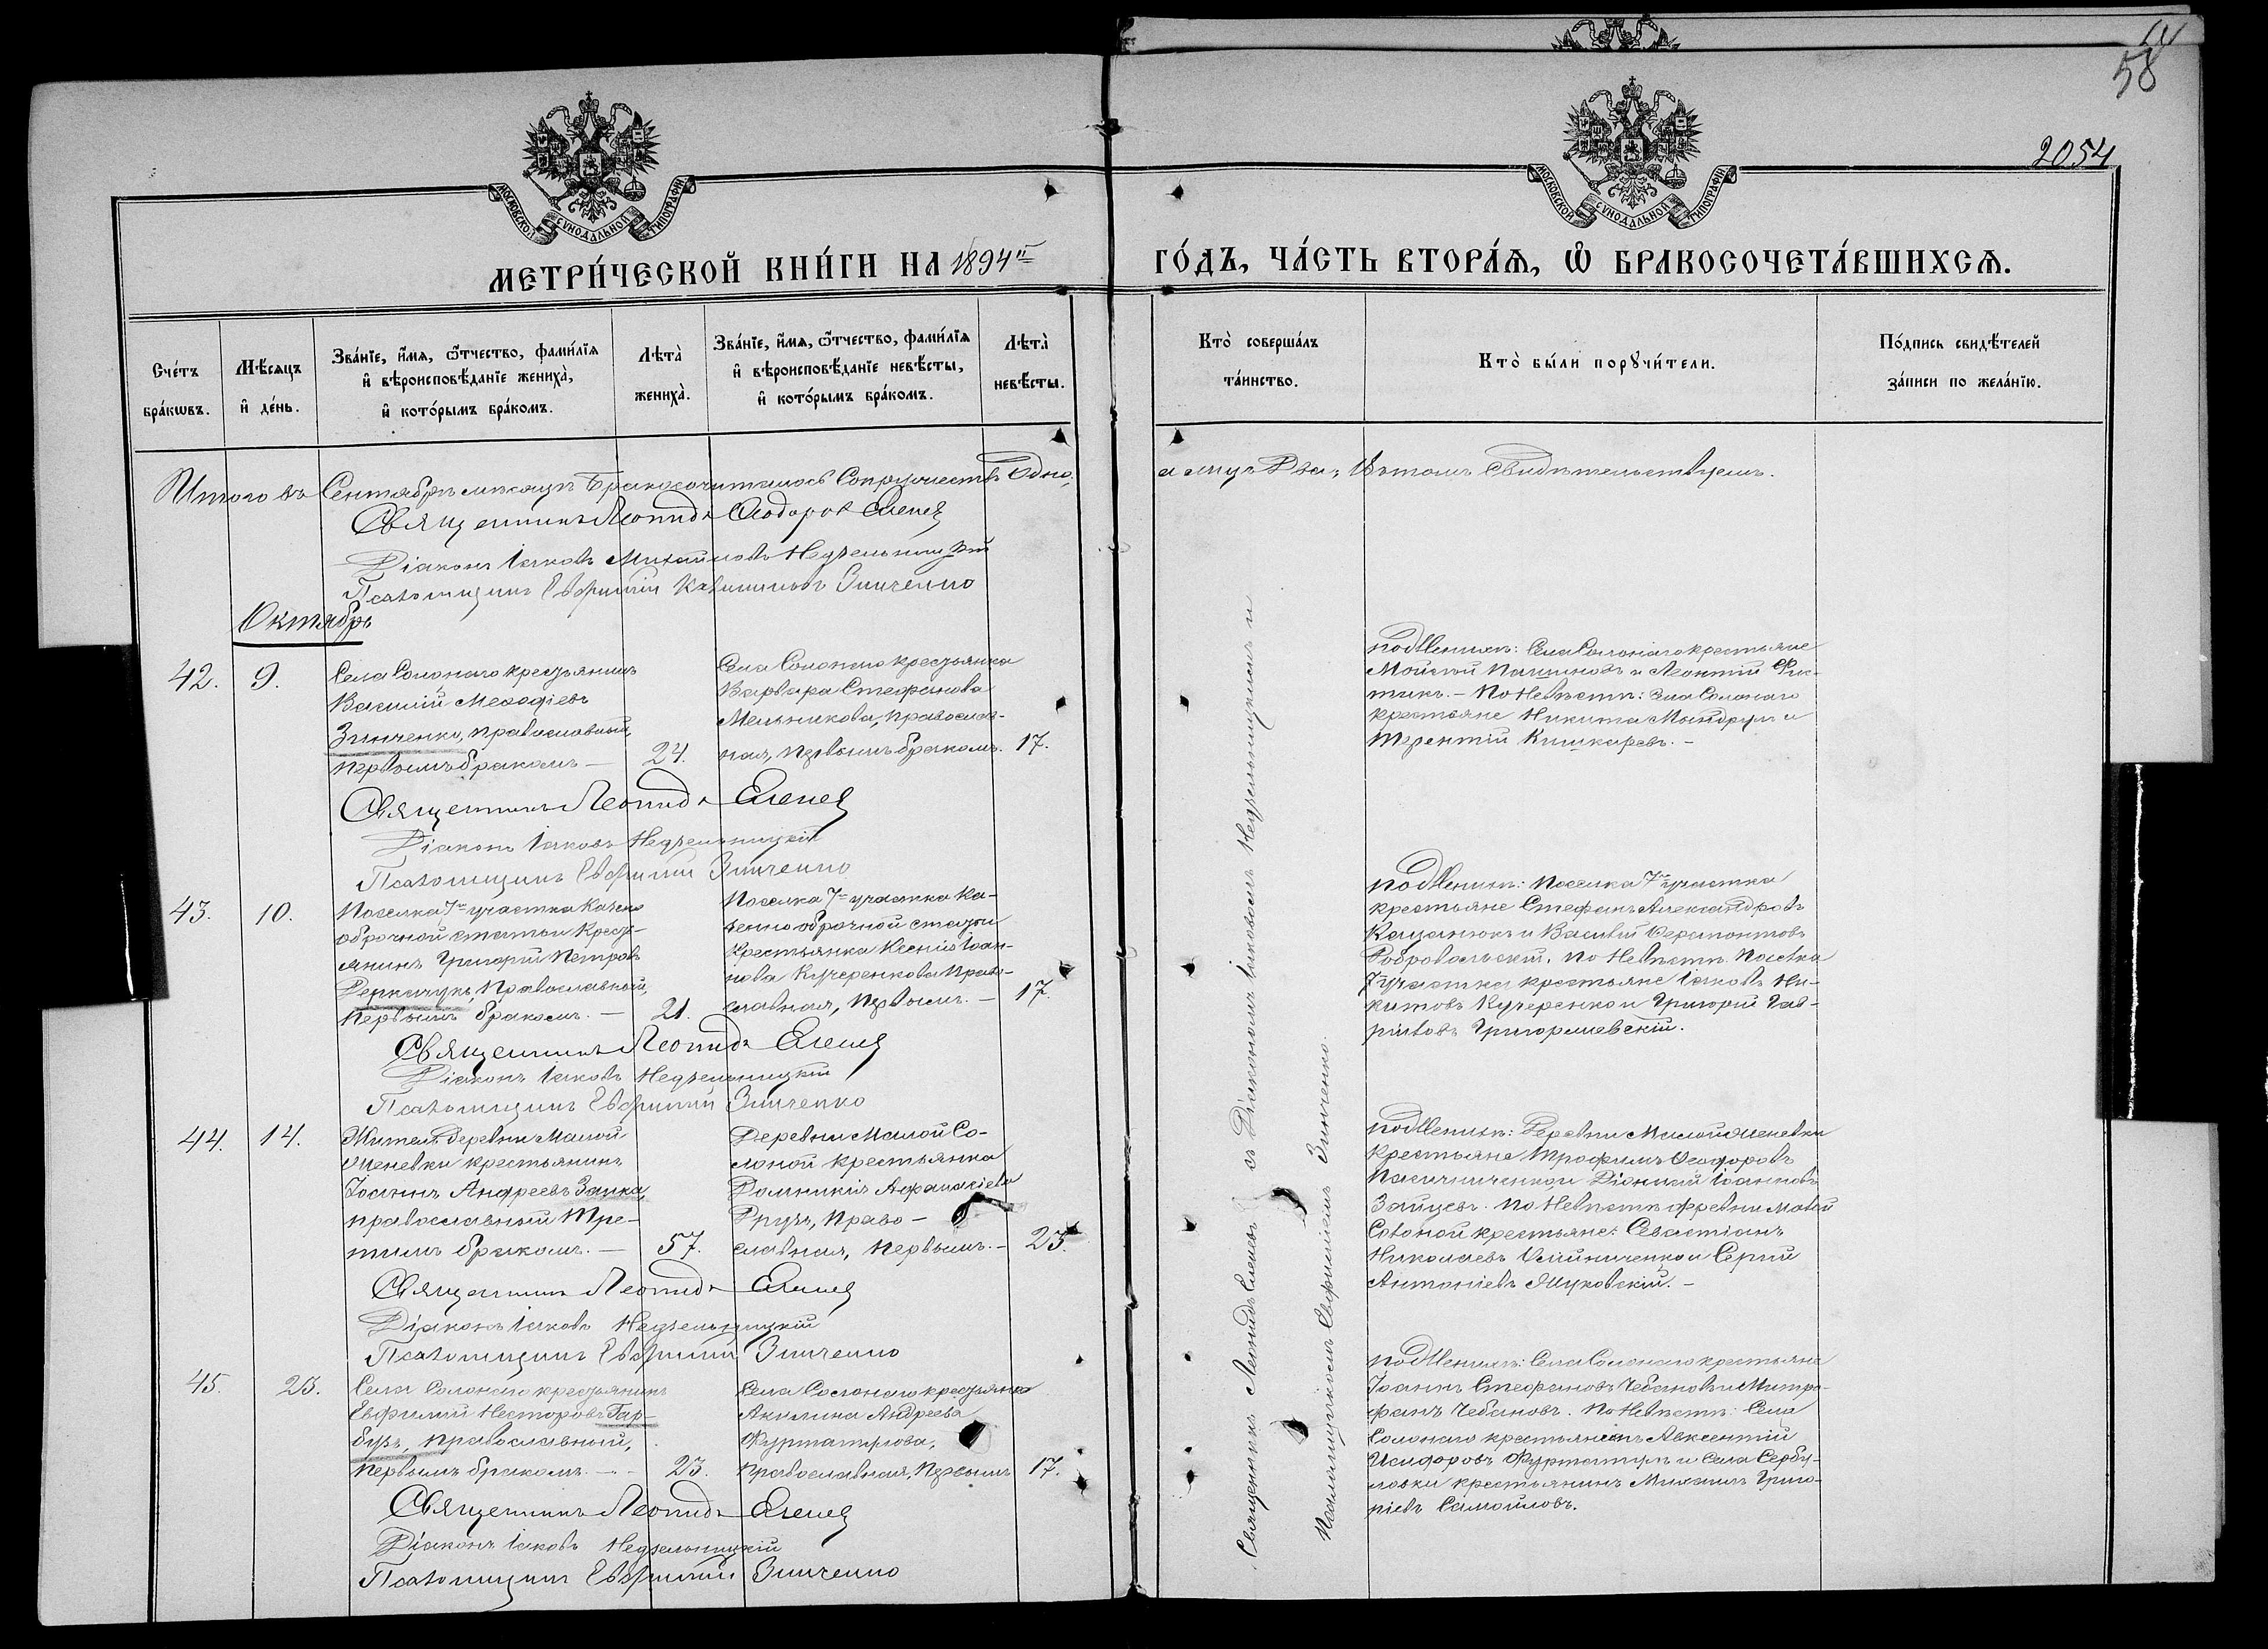 58
2054
МОСКОВСКОЙ СѴНОДАЛЬНОЙ ТИПОГРАФІИ
МОСКОВСКОЙ СѴНОДАЛЬНОЙ ТИПОГРАФІИ
МЕТРИ́ЧЕСКОЙ КНИ́ГИ НА 1894й ГО́ДЪ, ЧА́СТЬ ВТОРА́Ѧ, Ѡ БРАКОСОЧЕТА́ВШИХСѦ.
Сче́тъ бра́кѡвъ.
Мѣ́сяцъ и҆ де́нь.
Зва́нїе, и҆́мѧ, ѻ҆́тчество, фами́лїѧ и҆ вѣроисповѣ́данїе жениха̀, и҆ кото́рымъ бра́комъ.
Лѣта̀ жениха̀.
Зва́нїе, и҆́мѧ, ѻ҆́тчество, фами́лїѧ и҆ вѣроисповѣ́данїе невѣ́сты, и҆ кото́рымъ бра́комъ.
Лѣта̀ невѣ́сты.
Кто̀ соверша́лъ та́инство.
Кто̀ бы́ли порꙋчи́тели.
По́дпись свидѣ́телей за́писи по жела́нїю.
Итого въ Сентябрѣ мѣсяцѣ Бракосочиталось Супружествъ Одно, а лицъ Два, въ томъ свидѣтельствуемъ.
Священникъ Леонидъ Ѳеодоровъ Еленев
Діаконъ Іаковъ Михайловъ Недзельницкій
Псаломщикъ Евфимій Зинченко
Октябрь
42. 9.
Села Солонаго крестьянинъ
Василій Меѳодіевъ
Зинченко, православный,
первымъ бракомъ — 24.
Села Солонаго крестьянка
Варвара Стефанова
Мельникова, православ-
ная, первымъ бракомъ. 17.
по Женихѣ: Села Солонаго крестьяне
Мойсей и Леонтій Фис-
тикъ. — По Невѣстѣ: Села Солонаго
крестьяне Никита и
Терентій Кишкаревъ. —
Священникъ Леонидъ Еленев
Діаконъ Іаковъ Недзельницкій
Псаломщикъ Евфимій Зинченко
43. 10.
Поселка 7го участка Казенно
оброчной статьи Кресть-
янинъ Григорій Петровъ
Деркачукъ, Православный,
первымъ бракомъ. — 21.
Поселка 7го участка Ка-
зенно оброчной статьи
Крестьянка Ксенія Іоан-
нова Кучеренкова Право-
славная, первымъ. — 17.
по Женихѣ: Поселка 7го участка
крестьяне Стефанъ Александровъ
и Василій
Добровольскій. По Невѣстѣ. Поселка
7го участка крестьяне Іаковъ Ни-
китовъ Кучеренко и Григорій Гав-
риловъ Григорашевскій.
Священникъ Леонидъ Еленев
Діаконъ Іаковъ Недзельницкій
Псаломщикъ Евфимій Зинченко
44. 14.
Житель деревни Малой
Мечевки крестьянинъ
Іоаннъ Андреевъ Заика,
православный Тре-
тимъ бракомъ. — 57.
Деревни Малой Со-
лоной крестьянка
Домникія Аѳанасіева
Друзъ, Право-
славная, Первымъ. — 23.
по Женихѣ: Деревни Малой Мечевки
Крестьяне Трофимъ Ѳеодоровъ
Діонисій Іоанновъ
Зайцевъ. По Невѣстѣ деревни Малой
Солоной крестьяне: Севастіанъ
Николаевъ Олійниченко и Сергій
Антоніевъ Жуковскій. —
Священникъ Леонидъ Еленев
Діаконъ Іаковъ Недзельницкій
Псаломщикъ Евфимій Зинченко
45. 23.
Села Солонаго крестьянинъ
Евфимій Несторовъ Гар-
бузъ, православный,
первымъ бракомъ. — 23.
Села Солонаго крестьянка
Акилина Андреева
Фуртатурова,
православная, Первымъ 17.
по Женихѣ: Села Солонаго крестьяне
Іоаннъ Стефановъ Чебановъ и Митро-
фанъ Чебановъ. По Невѣстѣ: Села
Солонаго крестьянинъ Авксентій
Исидоровъ и Села Сербу-
ловки крестьянинъ Михаилъ Григо-
ріевъ Самойловъ.
Священникъ Леонидъ Еленев
Діаконъ Іаковъ Недзельницкій
Псаломщикъ Евфимій Зинченко
Священникъ Леонидъ Еленевъ съ Діакономъ Іаковомъ Недзельницкимъ и
Псаломщикомъ Евфиміемъ Зинченко.